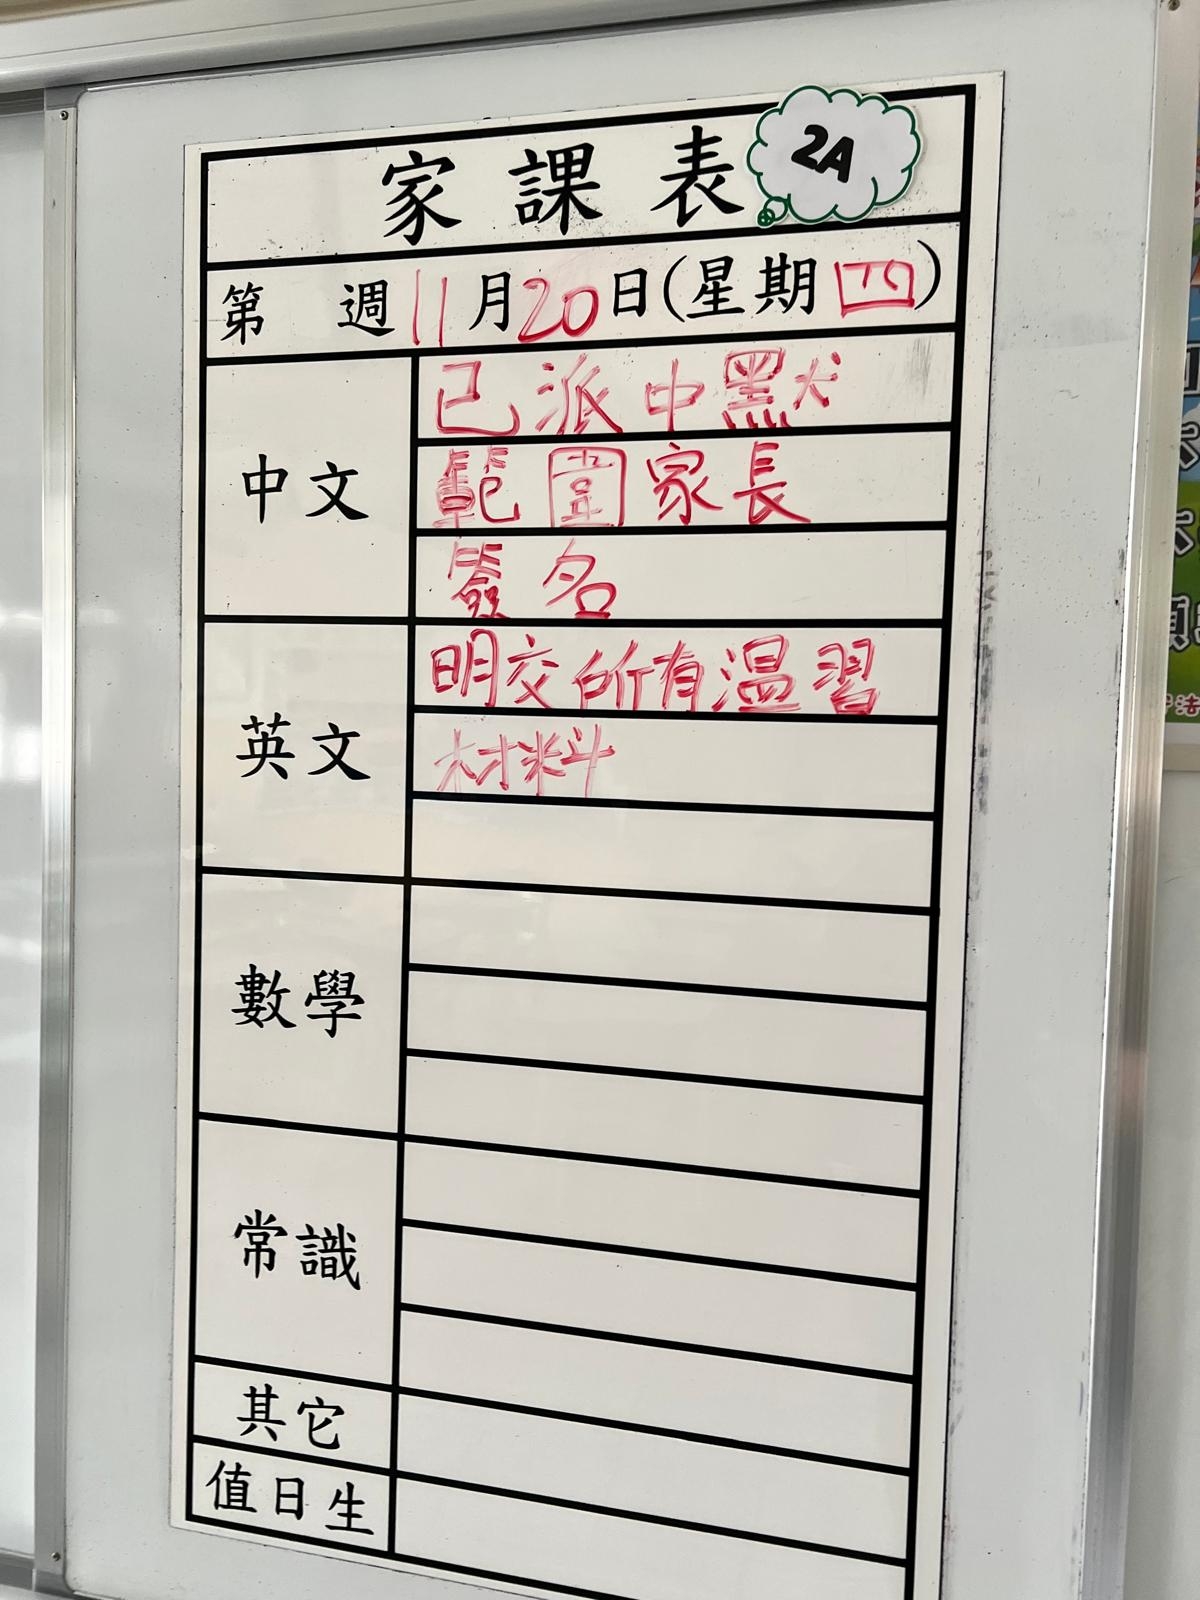 家課表 2A
第 週 11月20日(星期四)
中文
已派中默
範圍家長
簽名
英文
明交所有溫習
材料
數學
常識
其它
值日生